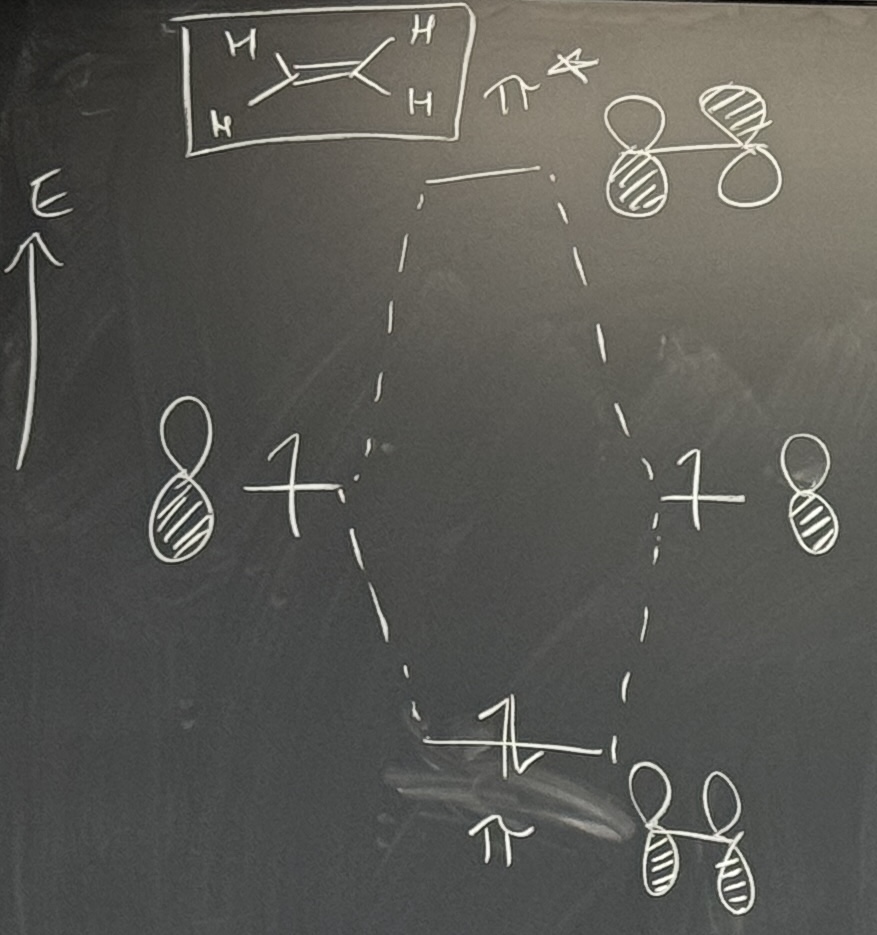 H H
H H
π*
E
π